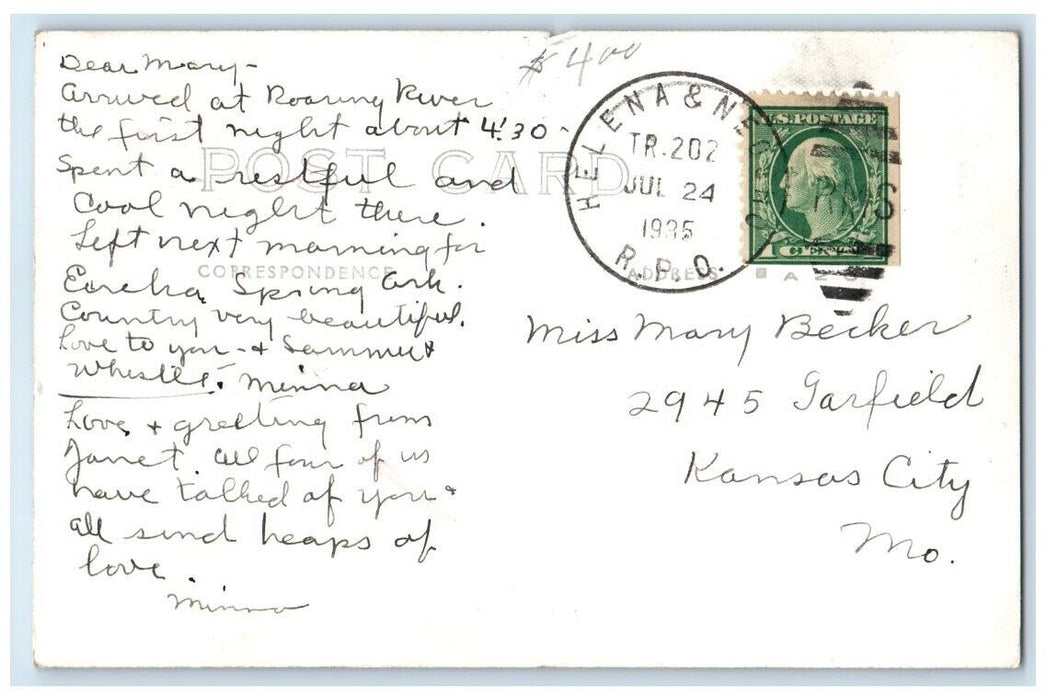 Dear Mary-
Arrived at Roaring River
the first night about 4:30-
Spent a restful and
Cool night there.
Left next morning for
Eureka Spring Ark.
Country very beautiful.
Love to you - & Sammy &
Whistle. Minna
Love & greeting from
Janet. All four of us
have talked of you &
all send heaps of
love.
Minna
$4.00
POST CARD
CORRESPONDENCE
ADDRESS
HELENA & NE
TR.202
JUL 24
1935
R.P.O.
U.S. POSTAGE
1 CENT
RMS
Miss Mary Becker
2945 Garfield
Kansas City
Mo.